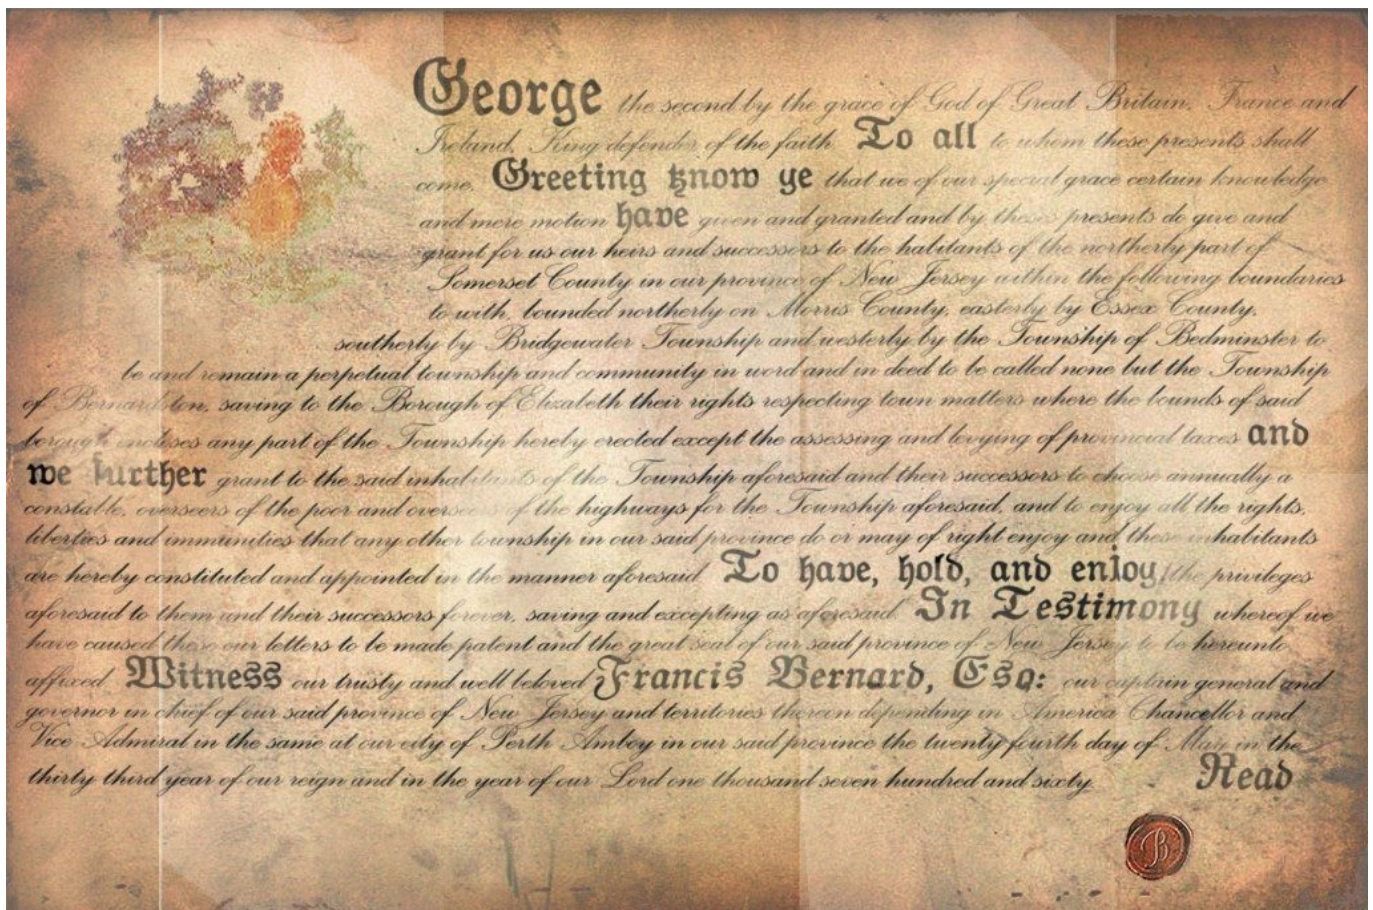 George the second by the grace of God of Great Britain, France and
Ireland, King defender of the faith To all to whom these presents shall
come, Greeting know ye that we of our special grace certain knowledge
and mere motion have given and granted and by these presents do give and
grant for us our heirs and successors to the habitants of the northerly part of
Somerset County in our province of New Jersey within the following boundaries
to with, bounded northerly on Morris County, easterly by Essex County,
southerly by Bridgewater Township and westerly by the Township of Bedminster to
be and remain a perpetual township and community in word and in deed to be called none but the Township
of Bernardston, saving to the Borough of Elizabeth their rights respecting town matters where the bounds of said
borough encloses any part of the Township hereby erected except the assessing and levying of provincial taxes and
we further grant to the said inhabitants of the Township aforesaid and their successors to choose annually a
constable, overseers of the poor and overseers of the highways for the Township aforesaid, and to enjoy all the rights,
liberties and immunities that any other township in our said province do or may of right enjoy and these inhabitants
are hereby constituted and appointed in the manner aforesaid To have, hold, and enjoy, the privileges
aforesaid to them and their successors forever, saving and excepting as aforesaid. In Testimony whereof we
have caused these our letters to be made patent and the great seal of our said province of New Jersey to be hereunto
affixed. Witness our trusty and well beloved Francis Bernard, Esq: our captain general and
governor in chief of our said province of New Jersey and territories thereon depending in America Chancellor and
Vice Admiral in the same at our city of Perth Amboy in our said province the twenty fourth day of May in the
thirty third year of our reign and in the year of our Lord one thousand seven hundred and sixty. Read
B